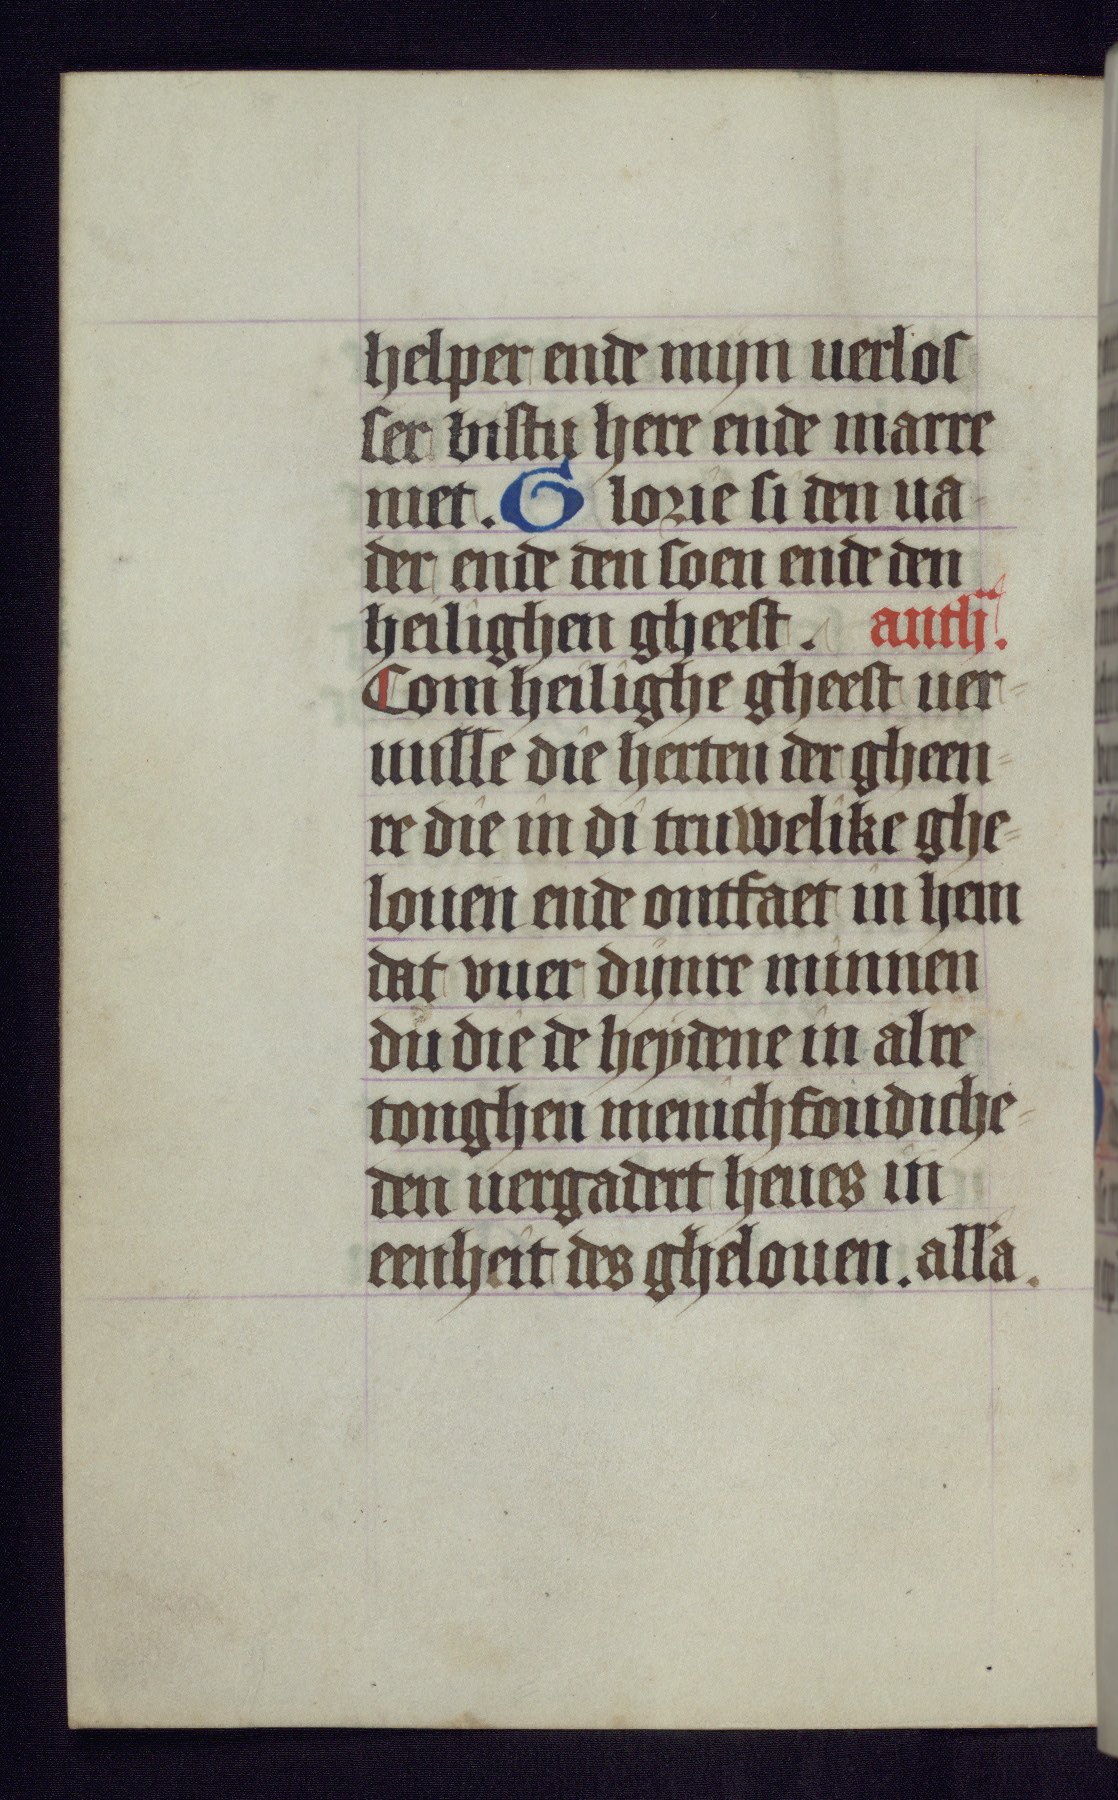 helper ende mijn uerlos
ser bistu here ende marre
niet. Glorie si den ua-
der ende den soen ende den
heilighen gheest. antˢ.
Com heilighe gheest uer-
uulle die herten der gheen-
re die in di truwelike ghe-
louen ende ontfaet in hem
dat vuer dijnre minnen
du die de heydene in alre
tonghen menichfoudiche-
den uergadert heues in
eenheit des ghelouen. alla.